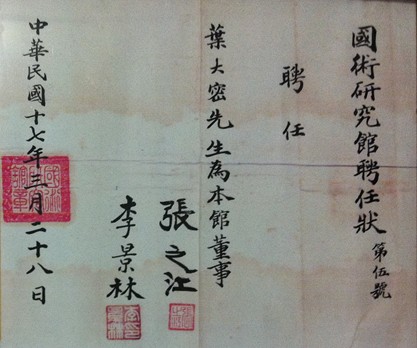 國術研究館聘任狀 第伍號
聘任
葉大密先生為本館董事
張之江
李景林
中華民國十七年三月二十八日